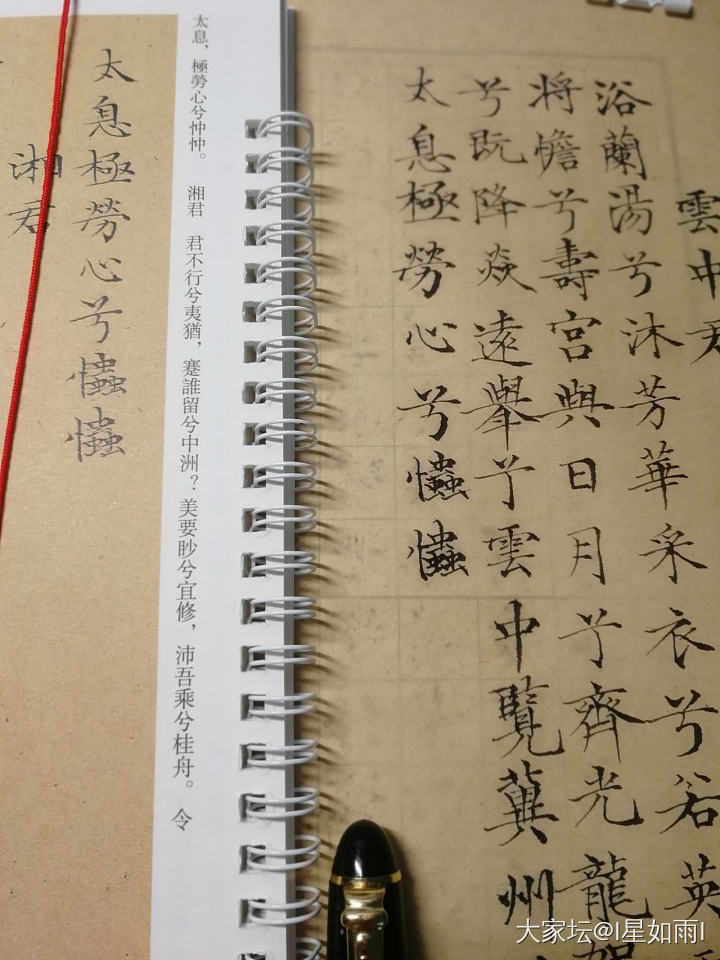 雲中君
浴蘭湯兮沐芳華采衣兮若英
将憺兮壽宮與日月兮齊光龍駕
兮既降焱遠舉兮雲中覽冀州
太息極勞心兮𢥞𢥞
太息，極勞心兮忡忡。 湘君 君不行兮夷猶，蹇誰留兮中洲？美要眇兮宜修，沛吾乘兮桂舟。令
太息極勞心兮𢥞𢥞
湘君
大家坛@I星如雨I